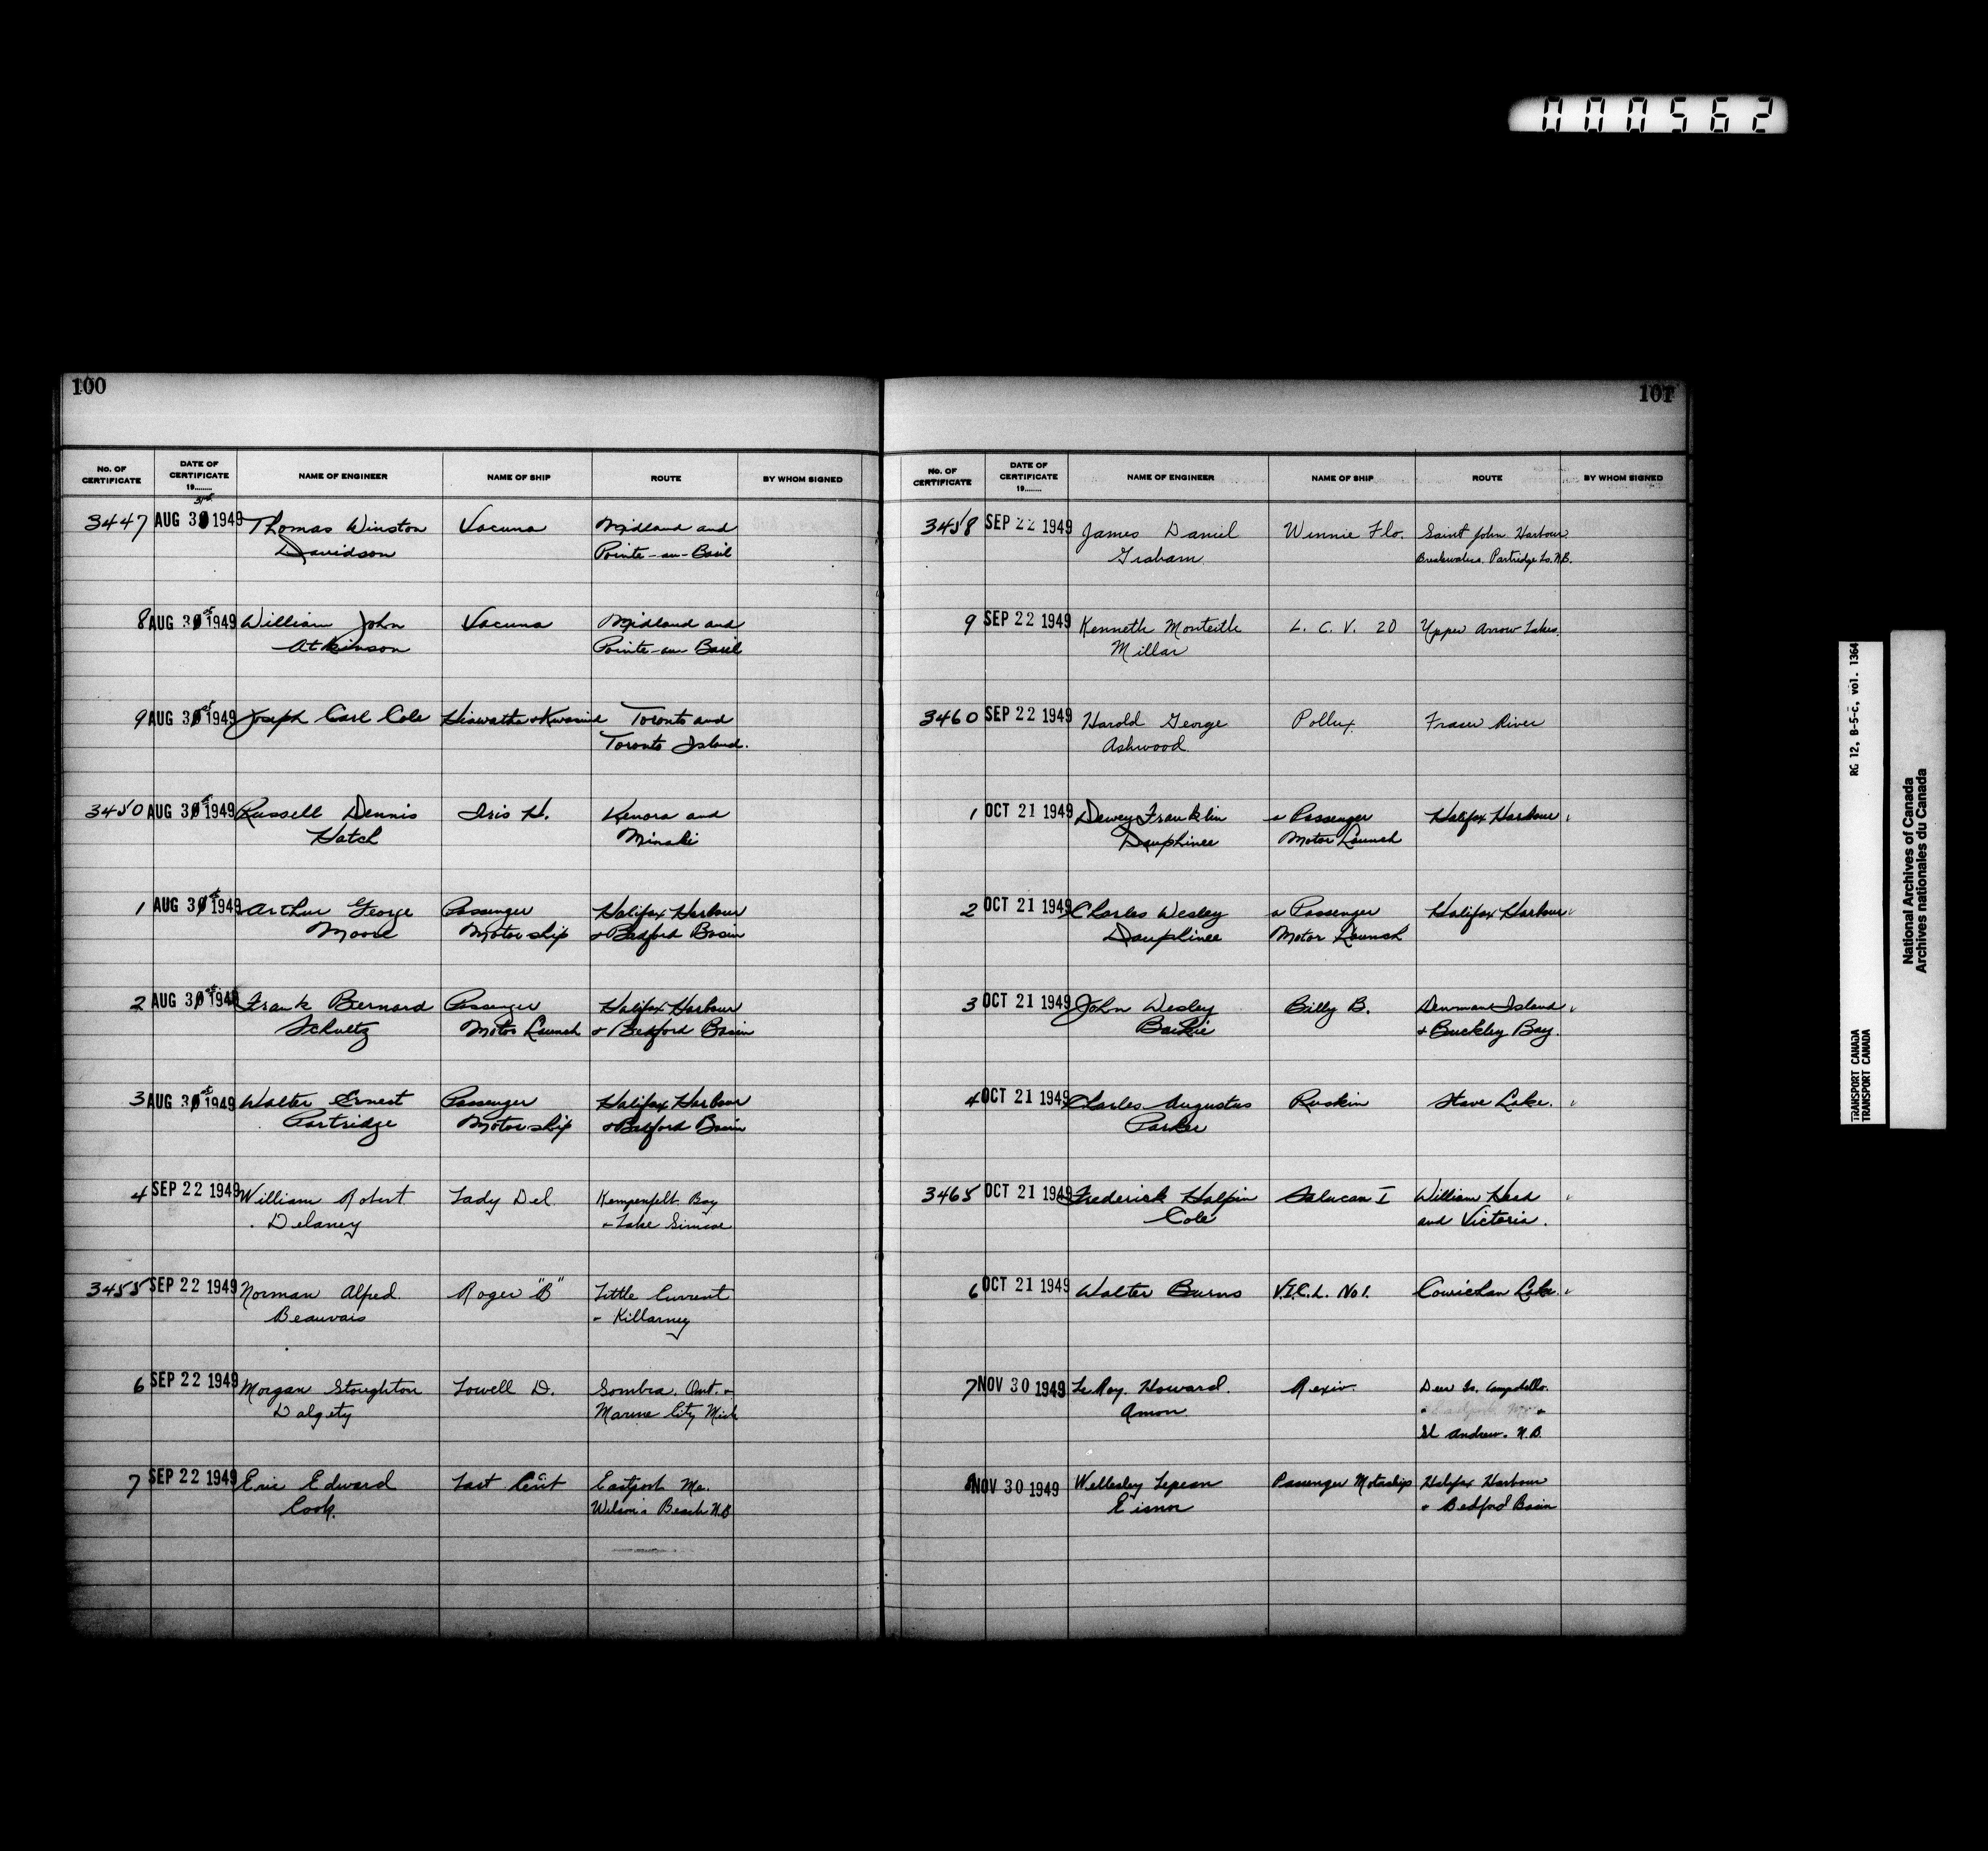 000562
100
No. OF CERTIFICATE DATE OF CERTIFICATE 19........ NAME OF ENGINEER NAME OF SHIP ROUTE BY WHOM SIGNED
31st
3447 AUG 30 1949 Thomas Winston Vacuna Midland and
Davidson Pointe-au-Baril
8 AUG 30 st 1949 William John Vacuna Midland and
Atkinson Pointe-au-Baril
9 AUG 30 st 1949 Joseph Carl Cole Hiawatha & Kwasind Toronto and
Toronto Island.
3450 AUG 30 st 1949 Russell Dennis Iris H. Kenora and
Hatch Minaki
1 AUG 30 st 1949 Arthur George Passenger Halifax Harbour
Moore Motorship & Bedford Basin
2 AUG 30 st 1949 Frank Bernard Passenger Halifax Harbour
Schultz Motor Launch & Bedford Basin
3 AUG 30 st 1949 Walter Ernest Passenger Halifax Harbour
Partridge Motorship & Bedford Basin
4 SEP 22 1949 William Robert Lady Del Kempenfelt Bay
Delaney & Lake Simcoe
3455 SEP 22 1949 Norman Alfred Roger "B" Little Current
Beauvais & Killarney
6 SEP 22 1949 Morgan Stoughton Lowell D. Sombra. Ont. &
Dalgety Marine City Mich
7 SEP 22 1949 Eric Edward Last Cent Eastport Me.
Cook. Wilson's Beach N.B
101
No. OF CERTIFICATE DATE OF CERTIFICATE 19........ NAME OF ENGINEER NAME OF SHIP ROUTE BY WHOM SIGNED
3458 SEP 22 1949 James Daniel Winnie Flo. Saint John Harbour
Graham Breakwaters. Partridge Is. N.B.
9 SEP 22 1949 Kenneth Monteith L. C. V. 20 Upper Arrow Lakes.
Millar
3460 SEP 22 1949 Harold George Pollux Fraser River
Ashwood
1 OCT 21 1949 Dewey Franklin a Passenger Halifax Harbour
Dauphinee Motor Launch
2 OCT 21 1949 Charles Wesley a Passenger Halifax Harbour
Dauphinee Motor Launch
3 OCT 21 1949 John Wesley Billy B. Denman Island
Baikie & Buckley Bay.
4 OCT 21 1949 Charles Augustus Ruskin Stave Lake.
Parker
3465 OCT 21 1949 Frederick Halpin Salucan I William Head
Cole and Victoria.
6 OCT 21 1949 Walter Burns V.I.C.L. No 1. Cowichan Lake.
7 NOV 30 1949 LeRoy Howard Rexiv. Deer Is. Campobello.
Amon
St Andrew. N.B.
8 NOV 30 1949 Wellesley Lepean Passenger Motorship Halifax Harbour
Eisnor & Bedford Basin
RG 12, B-5-c, vol. 1364
TRANSPORT CANADA
TRANSPORT CANADA
National Archives of Canada
Archives nationales du Canada